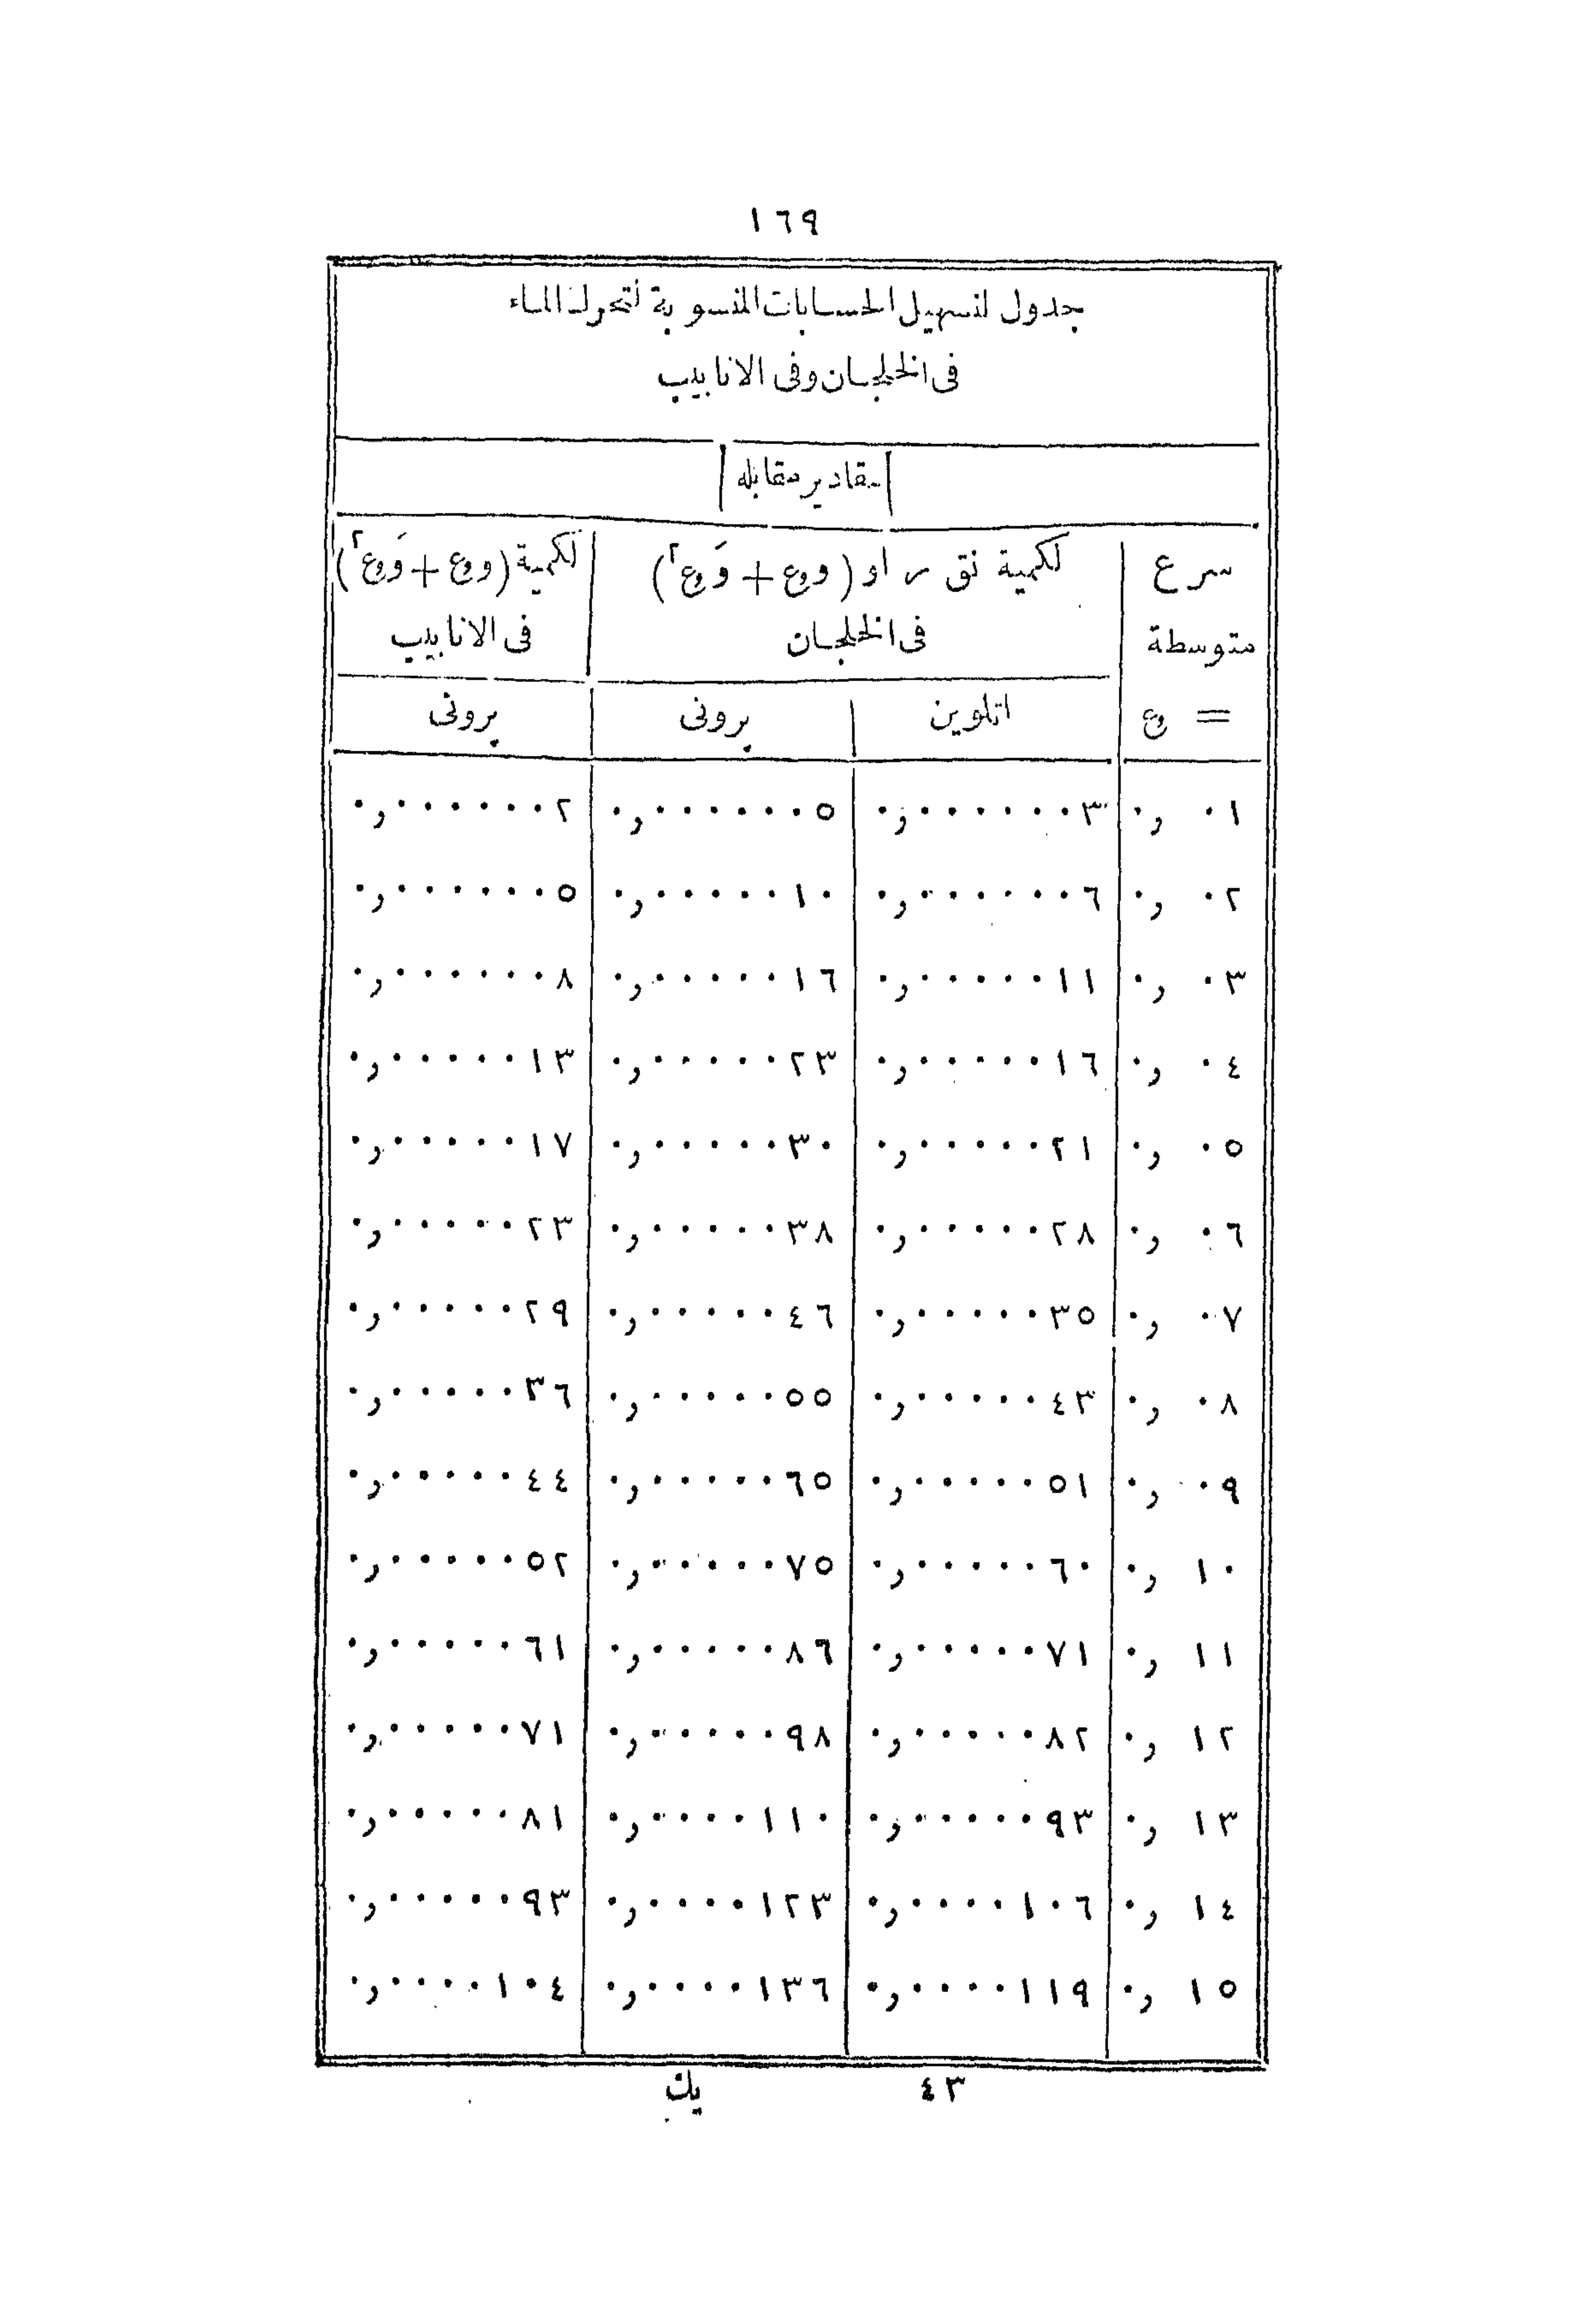 ١٦٩
جدول لتسهيل الحسابات المنسوبة لتحرك الماء
فى الخلجان وفى الانابيب
مقادير مقابله
سرع
متوسطة
= ع
لكمية نق س او (وع + وَع٢)
فى الخلجان
لكمية (وع + وَع٢)
فى الانابيب
اتلوين پرونى پرونى
٠,٠١ ٠,٠٠٠٠٠٠٣ ٠,٠٠٠٠٠٠٥ ٠,٠٠٠٠٠٠٢
٠,٠٢ ٠,٠٠٠٠٠٠٦ ٠,٠٠٠٠٠١٠ ٠,٠٠٠٠٠٠٥
٠,٠٣ ٠,٠٠٠٠٠١١ ٠,٠٠٠٠٠١٦ ٠,٠٠٠٠٠٠٨
٠,٠٤ ٠,٠٠٠٠٠١٦ ٠,٠٠٠٠٠٢٣ ٠,٠٠٠٠٠١٣
٠,٠٥ ٠,٠٠٠٠٠٢١ ٠,٠٠٠٠٠٣٠ ٠,٠٠٠٠٠١٧
٠,٠٦ ٠,٠٠٠٠٠٢٨ ٠,٠٠٠٠٠٣٨ ٠,٠٠٠٠٠٢٣
٠,٠٧ ٠,٠٠٠٠٠٣٥ ٠,٠٠٠٠٠٤٦ ٠,٠٠٠٠٠٢٩
٠,٠٨ ٠,٠٠٠٠٠٤٣ ٠,٠٠٠٠٠٥٥ ٠,٠٠٠٠٠٣٦
٠,٠٩ ٠,٠٠٠٠٠٥١ ٠,٠٠٠٠٠٦٥ ٠,٠٠٠٠٠٤٤
٠,١٠ ٠,٠٠٠٠٠٦٠ ٠,٠٠٠٠٠٧٥ ٠,٠٠٠٠٠٥٢
٠,١١ ٠,٠٠٠٠٠٧١ ٠,٠٠٠٠٠٨٦ ٠,٠٠٠٠٠٦١
٠,١٢ ٠,٠٠٠٠٠٨٢ ٠,٠٠٠٠٠٩٨ ٠,٠٠٠٠٠٧١
٠,١٣ ٠,٠٠٠٠٠٩٣ ٠,٠٠٠٠١١٠ ٠,٠٠٠٠٠٨١
٠,١٤ ٠,٠٠٠٠١٠٦ ٠,٠٠٠٠١٢٣ ٠,٠٠٠٠٠٩٣
٠,١٥ ٠,٠٠٠٠١١٩ ٠,٠٠٠٠١٣٦ ٠,٠٠٠٠١٠٤
٤٣ يك